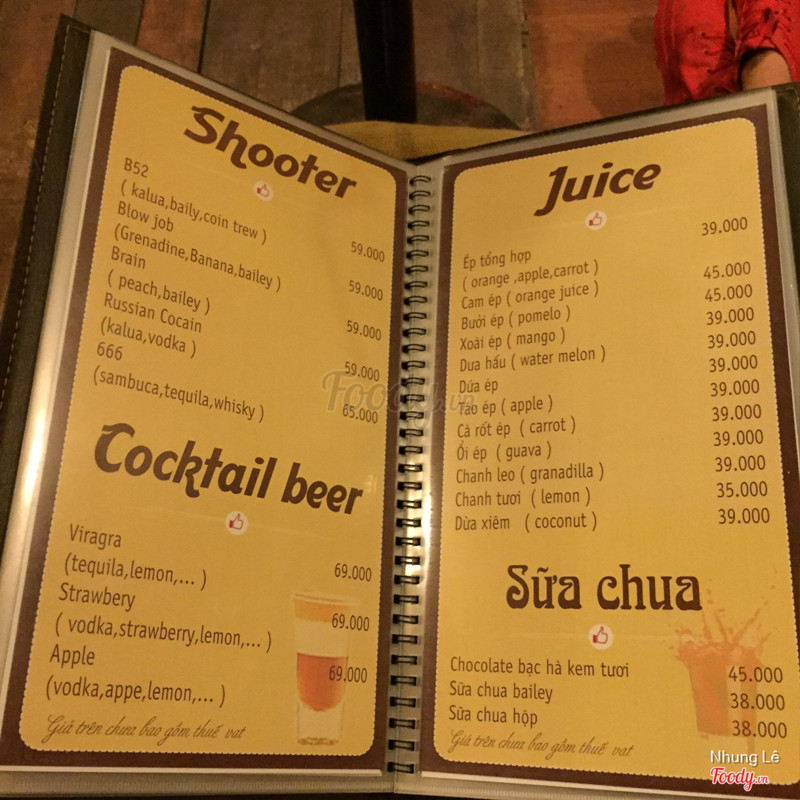 Shooter
B52
( kalua,baily,coin trew )
59.000
Blow job
(Grenadine,Banana,bailey )
59.000
Brain
( peach,bailey )
59.000
Russian Cocain
(kalua,vodka )
59.000
666
(sambuca,tequila,whisky )
65.000
Cocktail beer
Viragra
(tequila,lemon,... )
69.000
Strawbery
( vodka,strawberry,lemon,... )
69.000
Apple
(vodka,appe,lemon,... )
69.000
Giá trên chưa bao gồm thuế vat
Juice
Ép tổng hợp 39.000
( orange ,apple,carrot )
Cam ép ( orange juice ) 45.000
Bưởi ép ( pomelo ) 45.000
Xoài ép ( mango ) 39.000
Dưa hấu ( water melon ) 39.000
Dứa ép 39.000
Táo ép ( apple ) 39.000
Cà rốt ép ( carrot ) 39.000
Ổi ép ( guava ) 39.000
Chanh leo ( granadilla ) 39.000
Chanh tươi ( lemon ) 35.000
Dừa xiêm ( coconut ) 39.000
Sữa chua
Chocolate bạc hà kem tươi 45.000
Sữa chua bailey 38.000
Sữa chua hộp 38.000
Giá trên chưa bao gồm thuế vat
Foody.vn
Nhung Lê
Foody.vn